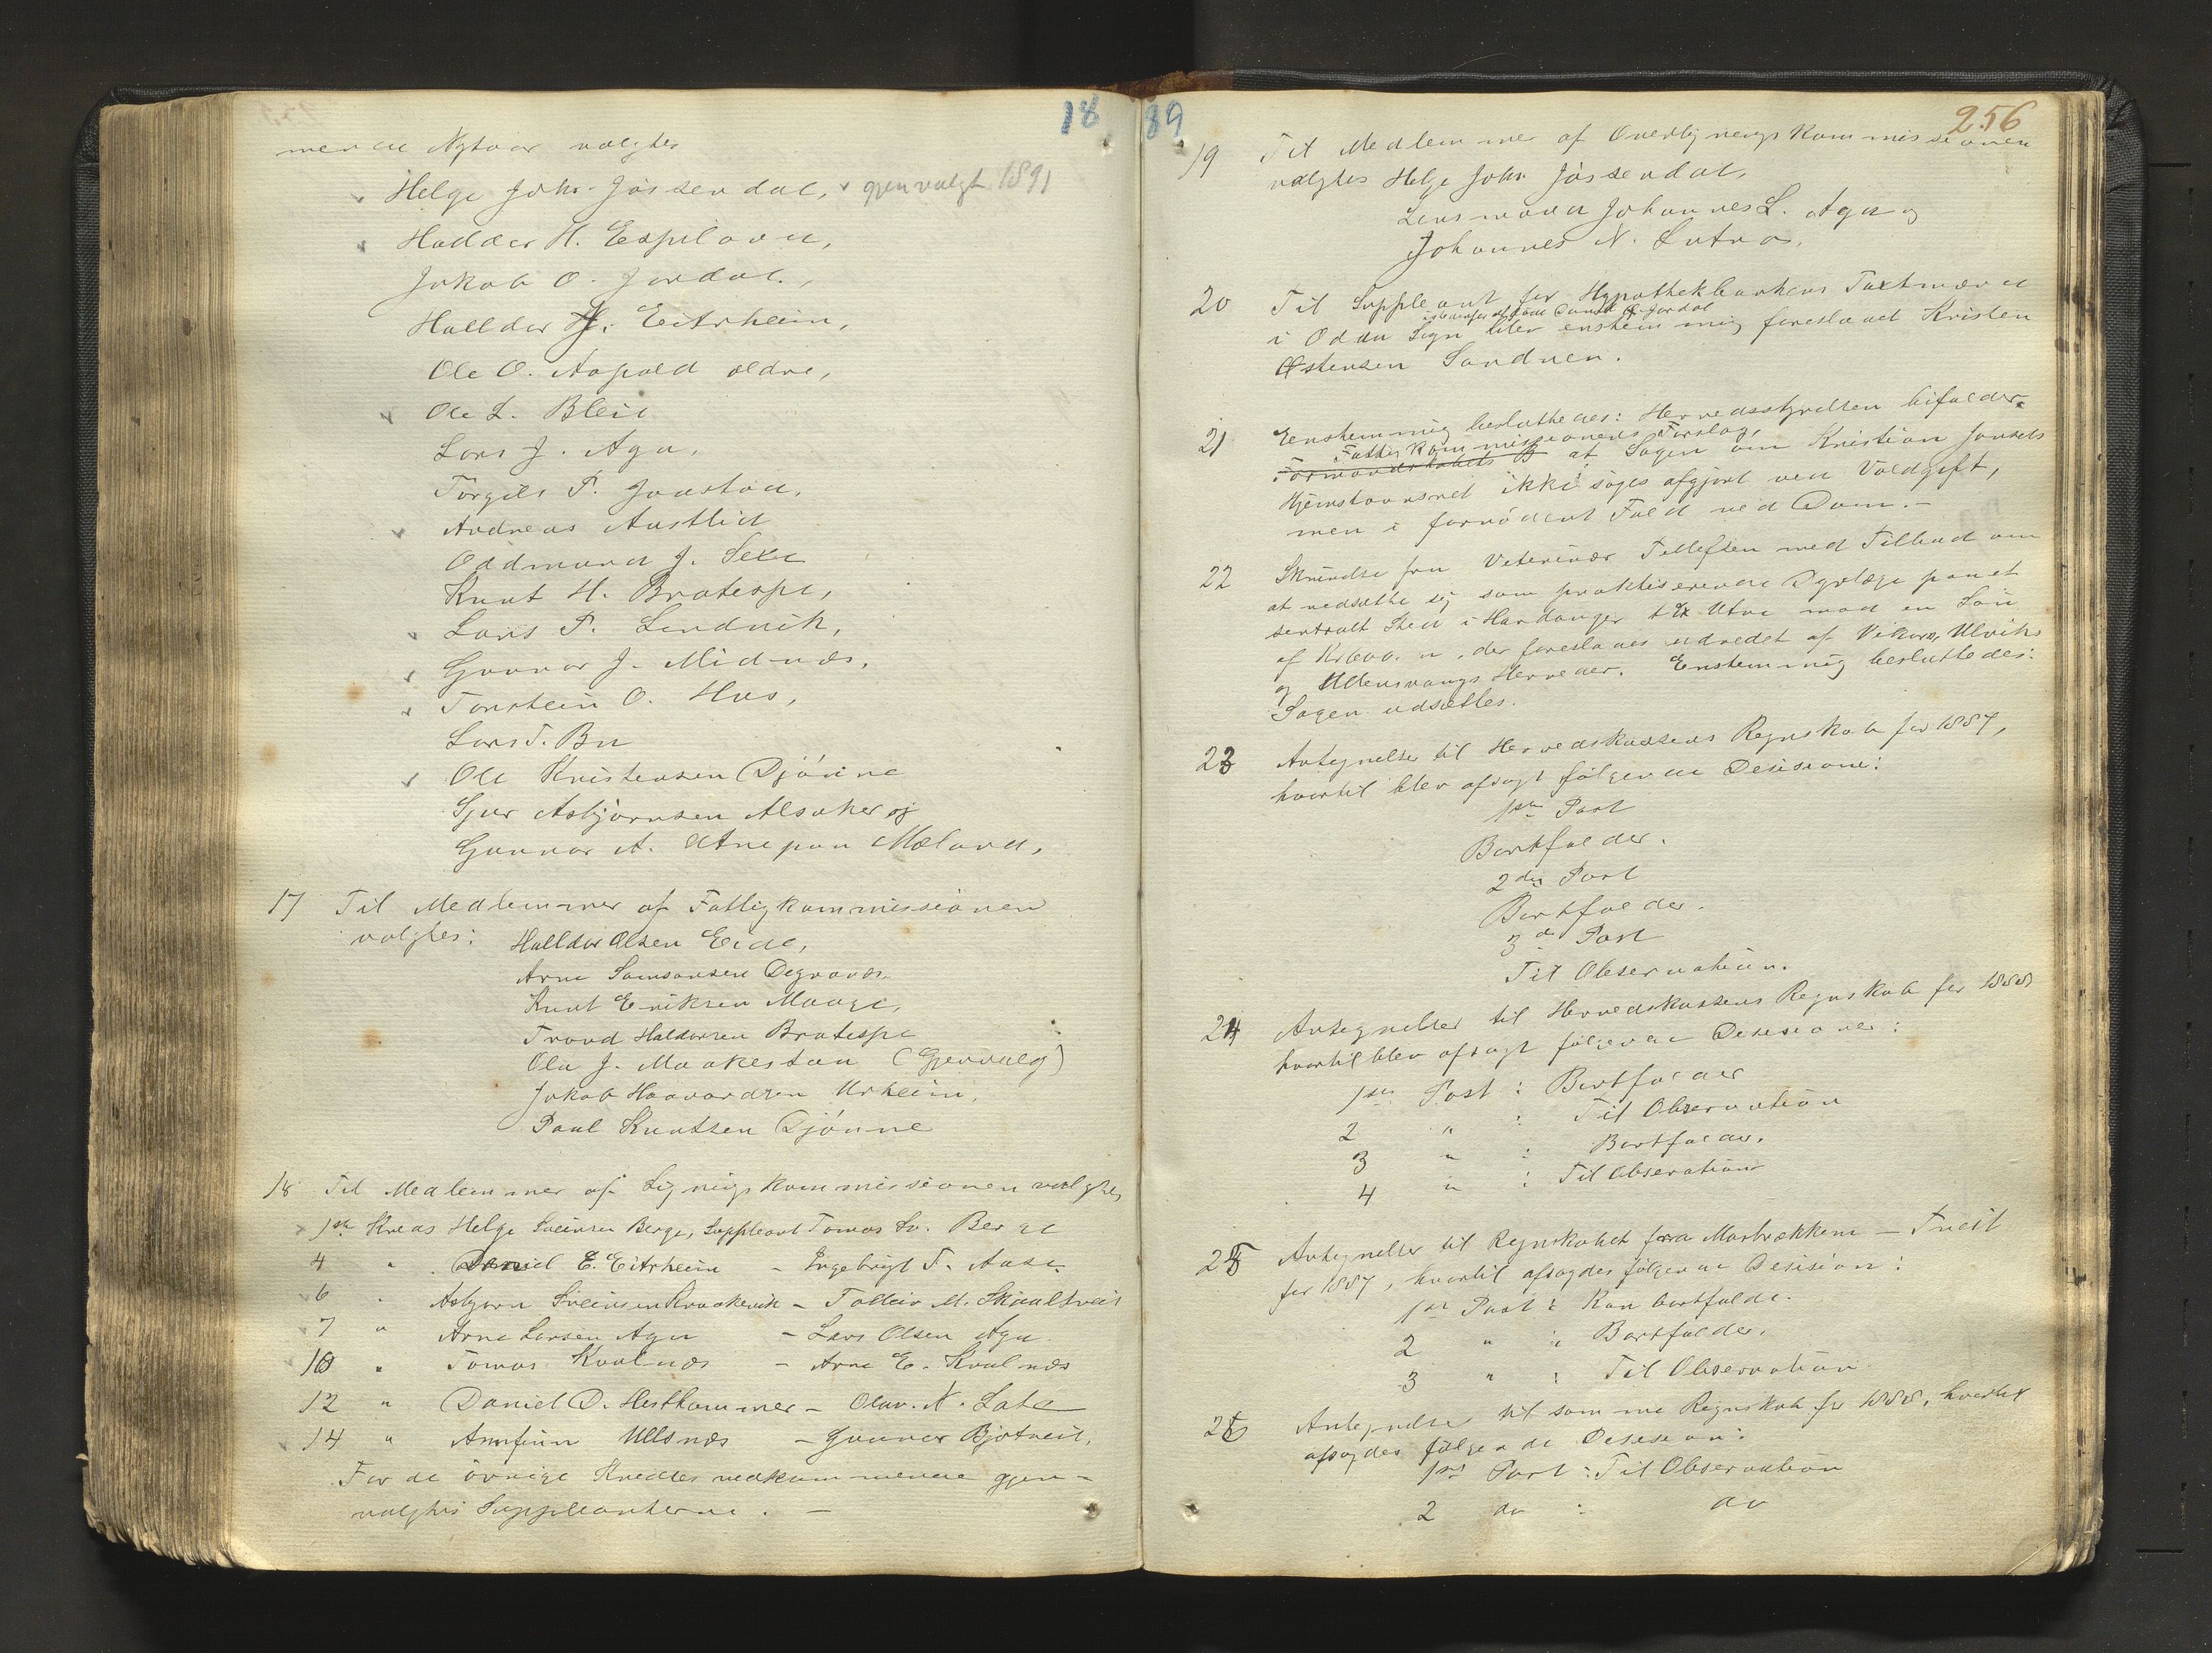 18
mende Nytaar valgtes
Helge Johs. Jössendal, gjenvalgt 1891
Haldor H. Espeland,
Jakob O. Jordal,
Halldor H. Eitrheim,
Ole O. Aapald ældre,
Ole L. Bleie
Lars J. Aga,
Törgils P. Jaastad,
Andreas Austlid
Oddmund J. Sexe
Knut H. Bratespe,
Lars P. Lindvik,
Gunnar J. Midnæs,
Torstein O. Hus,
Lars T. Bu
Ole Kristensen Djönne
Sjur Asbjörnsen Alsaker og
Gunnar A. Atnepaa Mæland,
17 Til Medlemmer af Fattigkommissionen
valgtes: Halldor Olsen Eide,
Arne Samsonsen Degranæs
Knut Eriksen Maage,
Trond Haldorsen Bratespe
Ola J. Maakestad (Gjenvalg)
Jakob Haavardsen Urheim,
Paul Knutsen Djönne
18 Til Medlemmer af Ligningskommissionen valgtes
1ste Kreds Helge Sveinsen Berge, Suppleant Tomas Sv. Berge
4 " Daniel E. Eitrheim - Ingebrigt T. Aase
6 " Asbjørn Sveinsen Kraakevik - Tolleiv M. Skaaltveit
7 " Arne Larsen Aga - Lars Olsen Aga
10 " Tomas Kvalnæs - Arne E. Kvalnæs
12 " Daniel D. Hesthammer - Olav. N. Lote
14 " Arnfinn Ullsnæs - Gunnar Bjotveit,
For de övrige Kredses vedkommende gjen-
valgtes Suppleanterne. -
89
256
19 Til Medlemmer af Overligningskommissionen
valgtes Helge Johs Jössendal,
Lensmand Johannes L. Aga og
Johannes N. Lutnæs,
20 Til Suppleant for Hypothekbankens Taxtmænd
istedenfor afdøde Amund O. Jordal
i Odda Sogn blev enstemmig foreslaaet Kristen
Østensen Sandven.
21 Enstemmig besluttedes: Herredsstyrelsen bifalder
Fattigkommissionens Forslag,
Formandskabets B at Sagen om Kristian Jonsens
Hjemstavnsret ikke søges afgjort ved Voldgift,
men i fornødent Fald ved Dom. -
22 Skrivelse fra Veterinær Tellefsen med Tilbud om
at nedsætte sig som praktiserende Dyrlæge paa et
sentralt Sted i Hardanger t Ex Utne mod en Løn
af Kr 600. , der foreslaaes udredet af Vikørs, Ulviks
og Ullensvangs Herreder. Enstemmig besluttedes:
Sagen udsættes.
23 Antegnelser til Herredskassens Regnskab for 1887,
hvortil blev afsagt følgende Desisione:
1ste Post
Bortfalder.
2den Post
Bortfalder.
3de Post
Til Observation.
24 Antegnelser til Herredskassens Regnskab for 1888
hvortil blev afsagt følgende Desisioner:
1ste Post : Bortfalder
2 " : Til Observation
3 " : Bortfalder.
4 " : Til Observation
25 Antegnelser til Regnskabet fra Morbrækkene - Tveit
for 1887, hvortil afsagdes følgende Desision:
1ste Post : Kan bortfalde.
2 " : Bortfalder.
3 " : Til Observation
26 Antegnelser til samme Regnskab for 1888, hvortil
afsagdes følgende Desision:
1ste Post : Til Observation
2 do : do